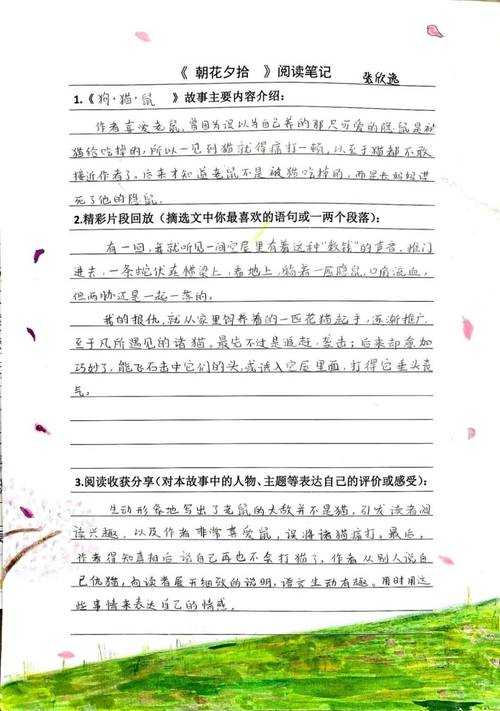 《 朝花夕拾 》阅读笔记 张欣逸
1.《狗·猫·鼠 》故事主要内容介绍：
作者喜爱老鼠，曾因为误以为自己养的那只可爱的隐鼠是被
猫给吃掉的，所以一见到猫就得痛打一顿，以至于猫都不敢
接近作者了。后来才知道老鼠不是被猫吃掉的，而是长妈妈
死了他的隐鼠.
2.精彩片段回放（摘选文中你最喜欢的语句或一两个段落）：
有一回，我就听见一间空屋里有着这种"数钱"的声音，推门
进去，一条蛇伏在横梁上，看地上，躺着一匹隐鼠，口角流血，
但两胁还是一起一落的。
我的报仇，就从家里饲养着的一匹花猫起手，逐渐推广，
至于凡所遇见的诸猫。最先不过是追赶，袭击；后来却愈加
巧妙了，能飞石击中它们的头，或诱入空屋里面，打得它垂头丧
气。
3.阅读收获分享（对本故事中的人物、主题等表达自己的评价或感受）：
生动形象地写出了老鼠的大敌并不是猫，引发读者阅
读兴趣，以及作者非常喜爱鼠，误将诸猫痛打。最后，
作者得知真相后说自己再也不会打猫了，作者从别人说自
己仇猫，向读者展开细致的说明，语文生动有趣。用时用这
些事情来表达自己的情感.